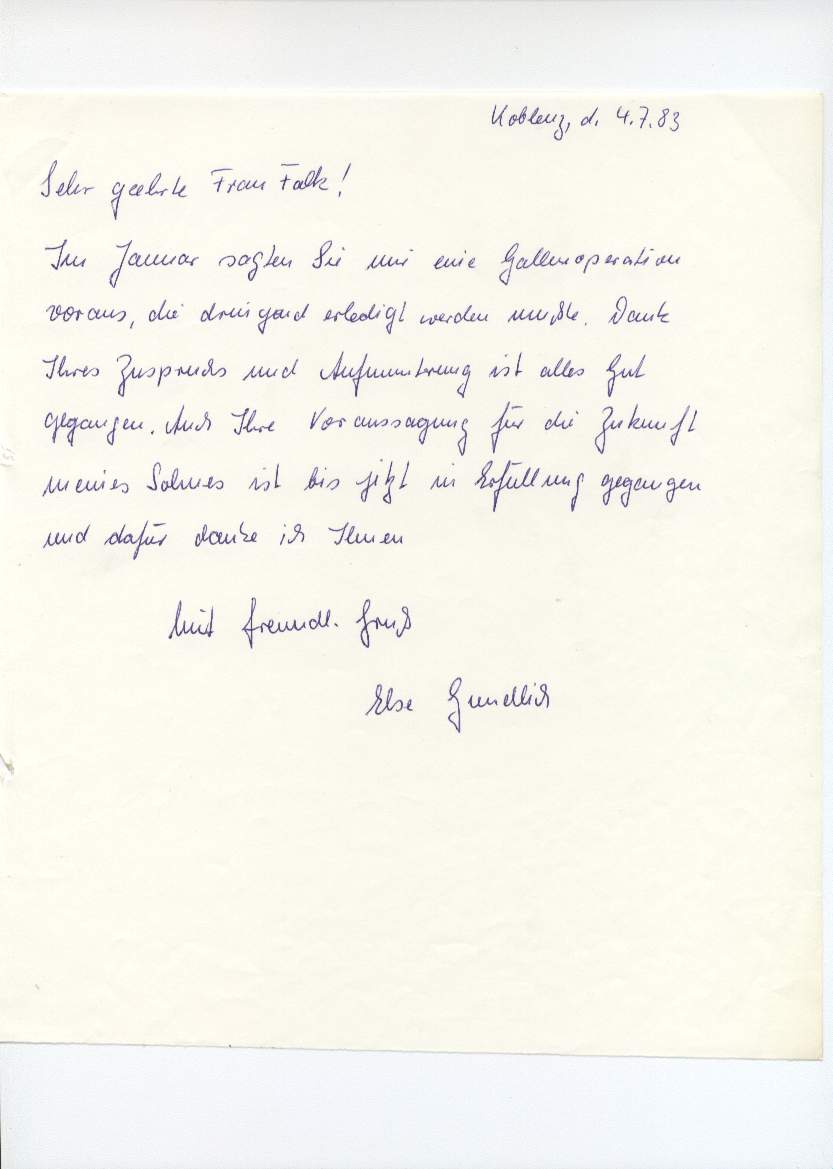 Koblenz, d. 4.7.83
Sehr geehrte Frau Falk!
Im Januar sagten Sie mir eine Gallenoperation
voraus, die dringend erledigt werden mußte. Dank
Ihres Zuspruchs und Aufmunterung ist alles Gut
gegangen. Auch Ihre Voraussagung für die Zukunft
meines Sohnes ist bis jetzt in Erfüllung gegangen
und dafür danke ich Ihnen
Mit freundl. Gruß
Else Gundlich